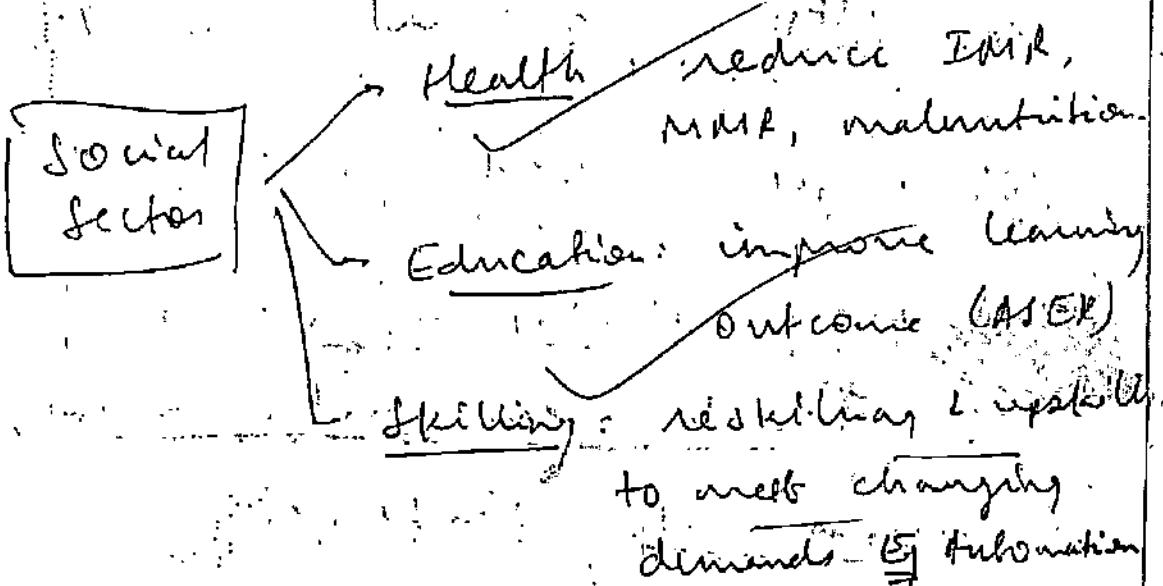 Social
Sector
Health : reduce IMR,
MMR, malnutrition.
Education: improve learning
outcome (ASER)
Skilling : reskilling & upskill
to meet changing
demands Eg Automation